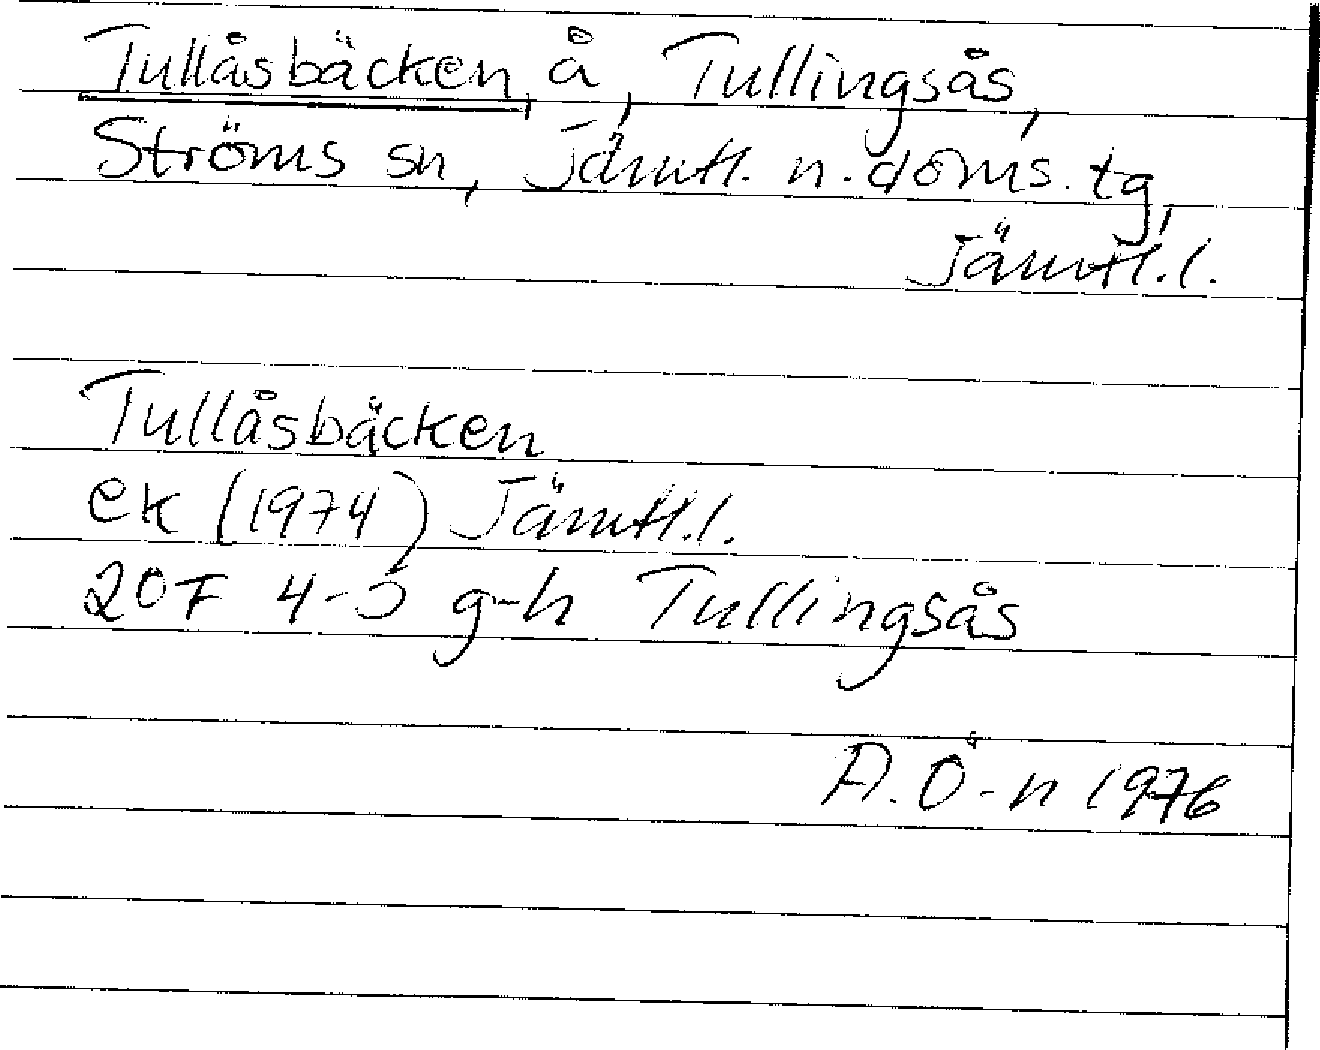 Tullåsbäcken, å, Tullingsås,
Ströms sn, Jämtl. n. doms. tg,
Jämtl. l.
Tullåsbäcken
ek (1974) Jämtl. l.
20F 4-5 g-h Tullingsås
A. Ö-n 1976